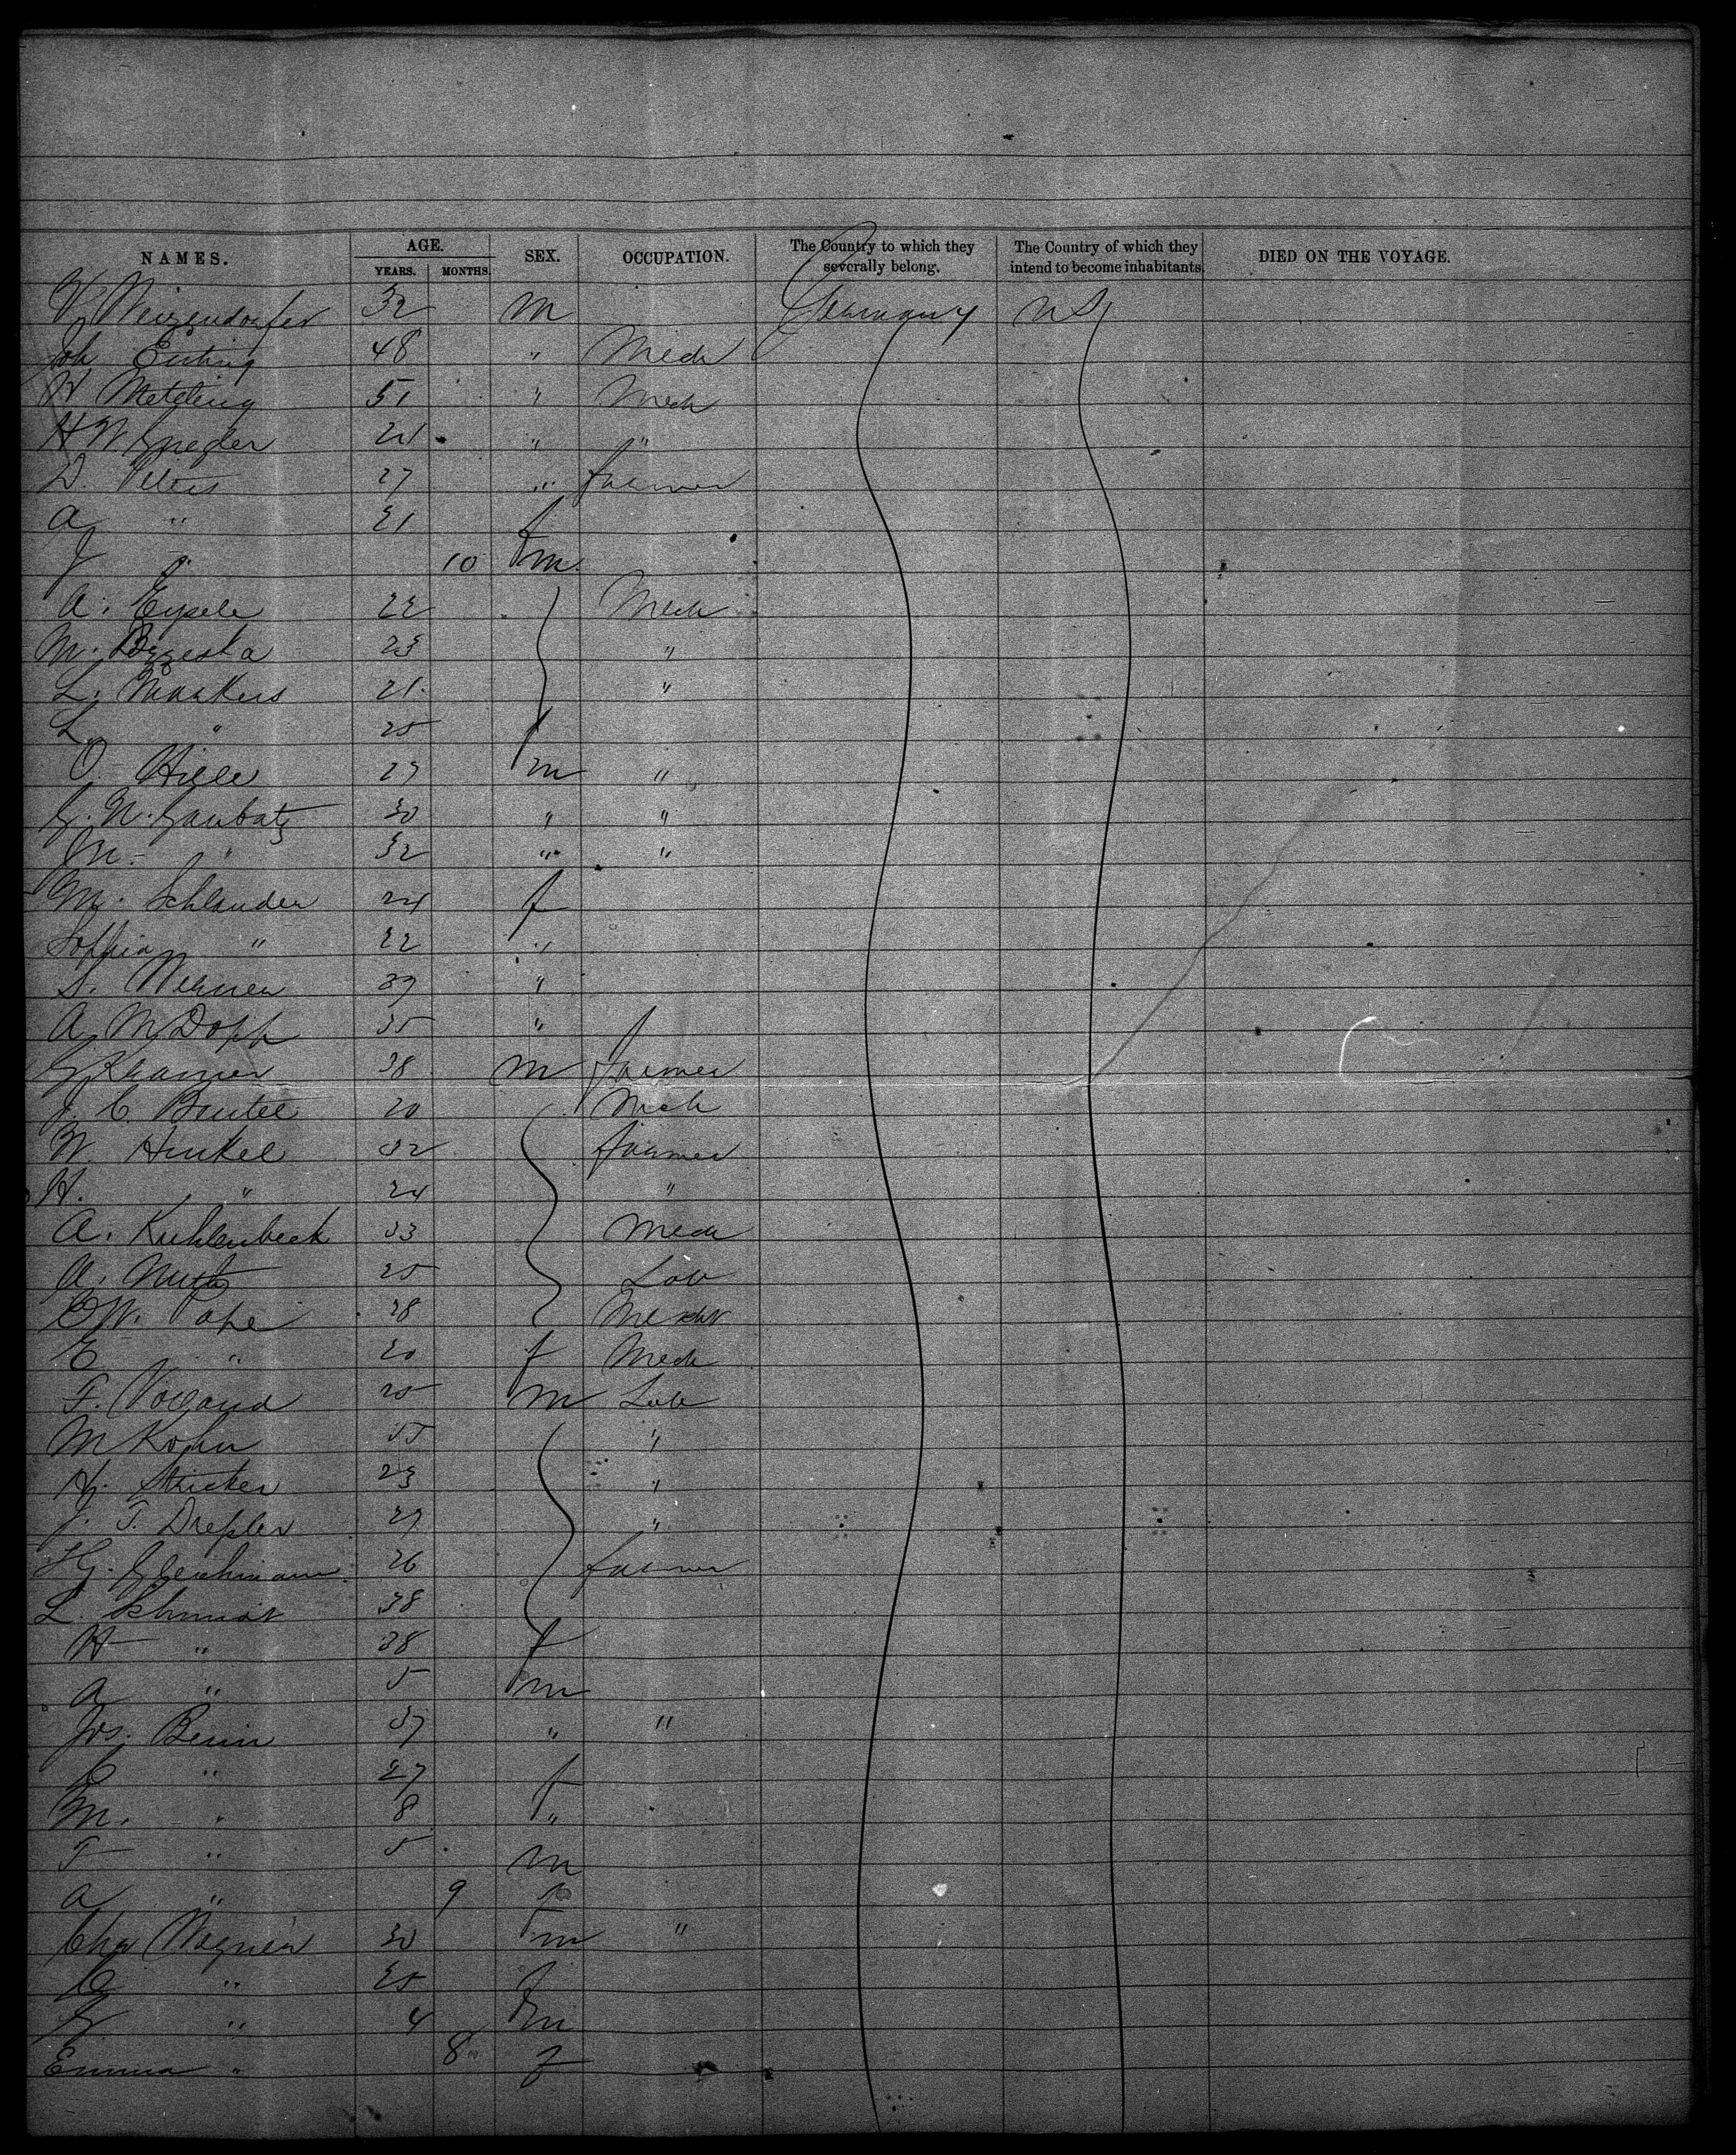 NAMES. AGE. YEARS. MONTHS. SEX. OCCUPATION. The Country to which they severally belong. The Country of which they intend to become inhabitants. DIED ON THE VOYAGE.
V. Weizendorfer 32 m Germany US
Joh Esting 48 " Mech
H Metzling 51 " Mech
H W 21 " "
D. Peters 27 " farmer
A " 21 f
J " 10 m
A. Eysele 22 Mech
M. 23 "
L. Markers 21 "
L. " 25 f
O Hille 27 m "
G. N. Gaubatz 30 " "
M. " 32 " "
M. Schlauder 24 f
Sophia " 22 "
S. Werner 39 "
A M Dopp 35 "
G Kramer 38 m farmer
J. C. Beutel 20 Mech
W. Henkel 32 farmer
H. " 24 "
A. Kuhlenbeck 33 Mech
A. Muth 25 Lab
W. Pape 28
E " 20 f Mech
F. Volland 25 m Lab
M Kohn 55 "
H. Stricker 23 "
J. T. Dreßler 29 "
Hg. Gleichmann 26 farmer
L. Schmidt 38
H " 38 f
A " 5 m
Jos. Benin 37 " "
C " 27 f
M. " 8 "
F " 5 m
A " 9 f
Cha Wagner 30 m "
C " 25 f
G " 4 m
Emma " 8 f